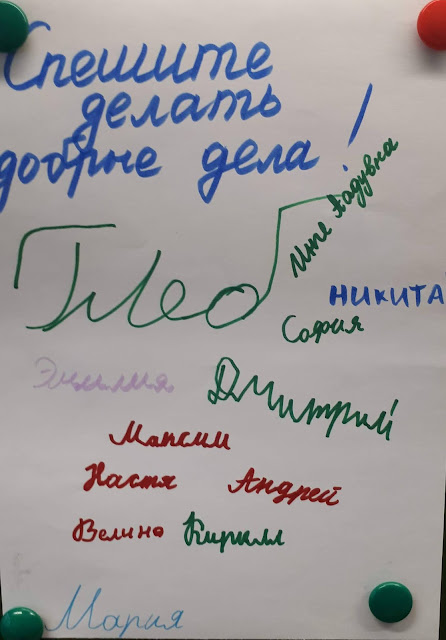 Спешите
делать
добрые дела!
Глеб
НИКИТА
София
Эмилия
Дмитрий
Максим
Настя Андрей
Велина Кирилл
Мария